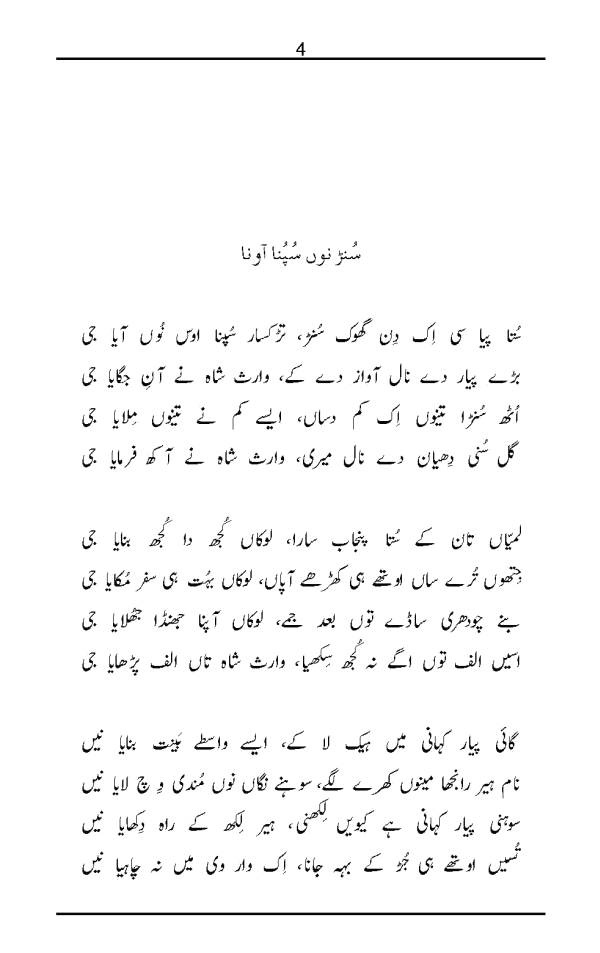 4
سُنڑ نوں سُپُنا آونا
سُتا پیا سی اِک دِن گھُوک سُنڑ، تڑکسار سُپنا اوس نُوں آیا جی
بڑے پیار دے نال آواز دے کے، وارث شاہ نے آنِ جگایا جی
اُٹھ سُنڑا تینوں اِک کم دساں، ایسے کم نے تینوں مِلایا جی
گل سُنی دِھیان دے نال میری، وارث شاہ نے آکھ فرمایا جی
لمیّاں تان کے سُتا پنجاب سارا، لوکاں کُجھ دا کُجھ بنایا جی
جِتھوں تُرے ساں اوتھے ہی کھڑھے آپاں، لوکاں بہُت ہی سفر مُکایا جی
بنے چودھری ساڈے توں بعد جمے، لوکاں آپنا جھنڈا جھُلایا جی
اسیں الف توں اگے نہ کُجھ سِکھیا، وارث شاہ تاں الف پڑھایا جی
گائی پیار کہانی میں ہیک لا کے، ایسے واسطے بَینت بنایا نیں
نام ہیر رانجھا مینوں کھرے لگے، سوہنے نگاں نوں مُندی وِچ لایا نیں
سوہنی پیار کہانی ہے کیویں لِکھنی، ہیر لِکھ کے راہ دِکھایا نیں
تُسیں اوتھے ہی جُڑ کے بہہ جانا، اِک وار وی میں نہ چاہیا نیں